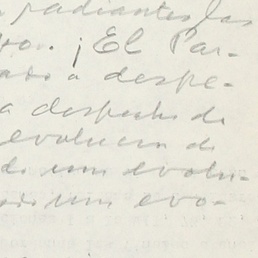 radiantes las
¡El Par-
a despe-
a despecho de
evolucion de
de una evolu-
una evo-